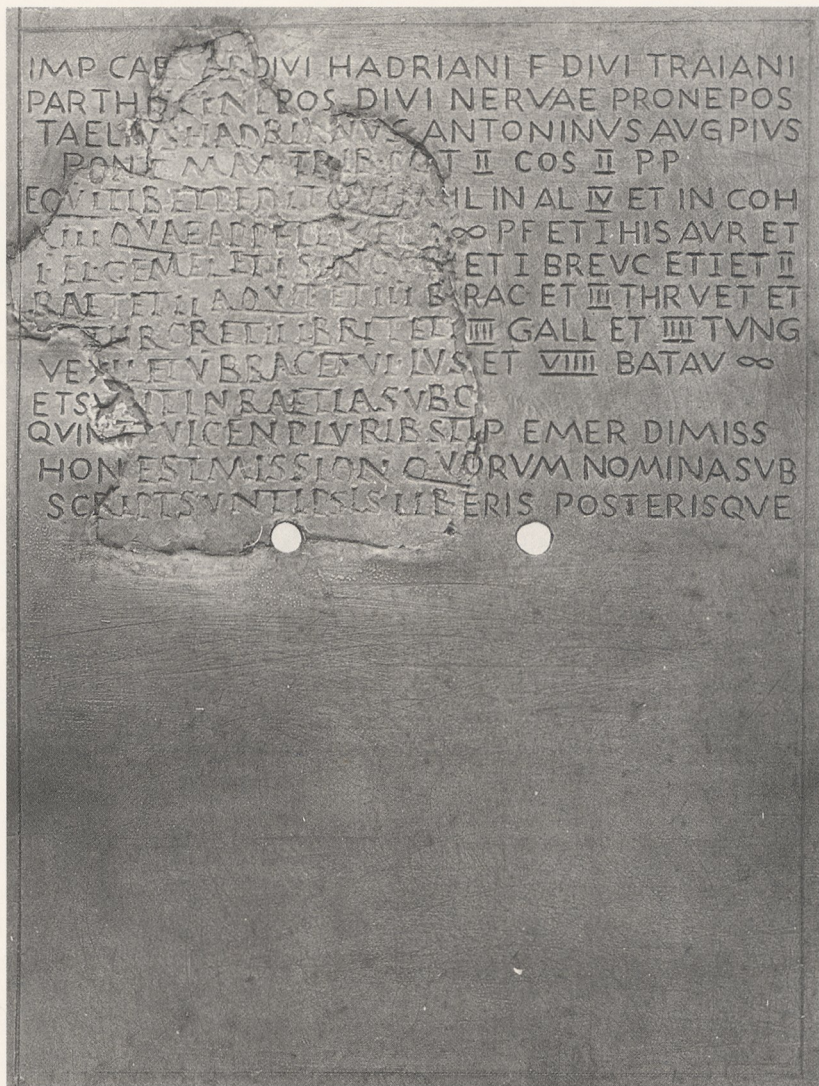 IMP CAESAR DIVI HADRIANI F DIVI TRAIANI
PARTHICI NEPOS DIVI NERVAE PRONEPOS
TAELIVS HADRIANVS ANTONINVS AVG PIVS
PONT MAX TRIB POT II COS II PP
EQVITIB ET PEDIT QVI MIL IN AL IV ET IN COH
XIII QVAE APPELL ∞ PF ET I HIS AVR ET
ET I BREVC ET I ET II
RAET ET II AQVIT ET III BRAC ET III THR VET ET
THR C R ET III BRIT ET IIII GALL ET IIII TVNG
VEXIL ET V BRAC ET VI LVS ET VIIII BATAV ∞
ET SVNT IN RAETIA SVB C
QVIN VICEN PLVRIB STIP EMER DIMISS
HONEST MISSION QVORVM NOMINA SVB
SCRIPT SVNT IPSIS LIBERIS POSTERISQVE